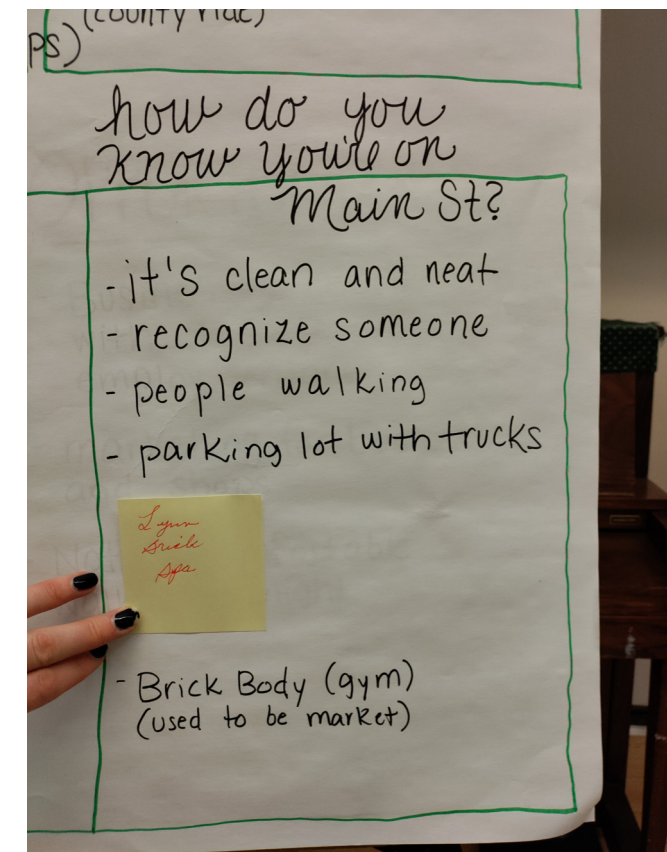 (county
PS)
how do you
know you're on
Main St?
- it's clean and neat
- recognize someone
- people walking
- parking lot with trucks
Lynn
Spa
- Brick Body (gym)
(used to be market)